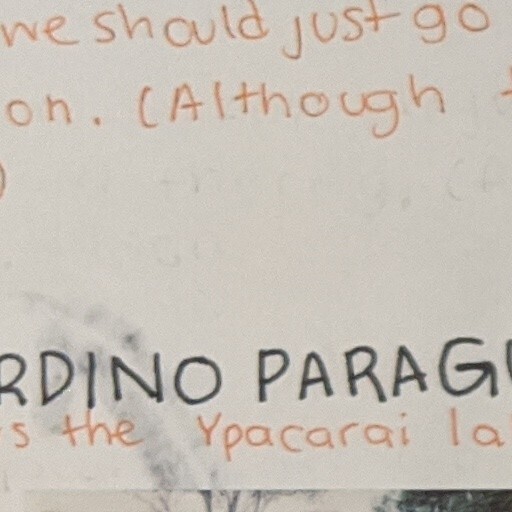 we should just go
on. (Although
)
RDINO PARAG
s the Ypacarai la